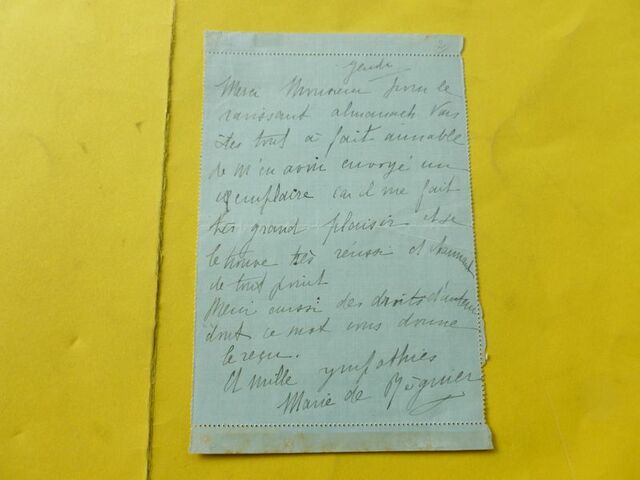 jeudi
Merci Monsieur pour le
ravissant almanach Vous
êtes tout à fait aimable
de m'en avoir envoyé un
exemplaire car il me fait
très grand plaisir. et je
le trouve très réussi et charmant
de tout point
Merci aussi des droits d'auteur
dont ce mot vous donne
le reçu.
Et mille sympathies
Marie de Régnier